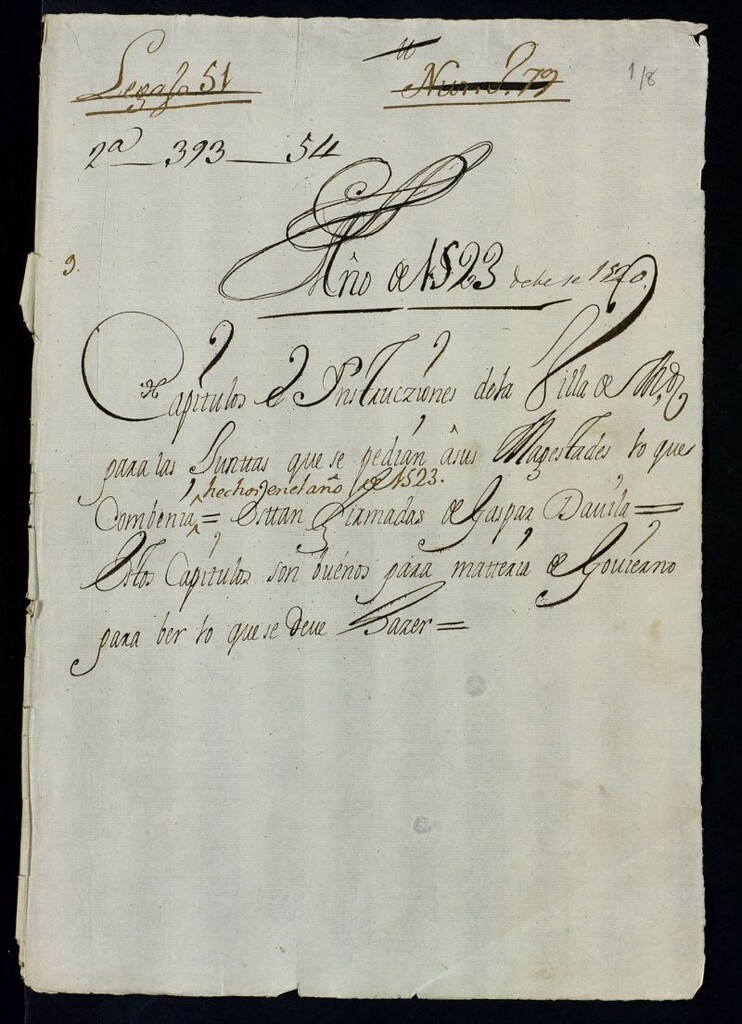 Legaxo 51
Num.o 79
1/8
2ª — 393 — 54
9.
Año de 1523 debe se 1520.
Capitulos e Instrucziones de la Villa de M.d
para las Junttas que se pedian â sus Magestades lo que
hechos en el año de 1523.
Combenia = Esttan firmadas de Gaspar Davila =
Estos Capitulos son buenos para matteria de Govierno
para ber lo que se deve Hazer =